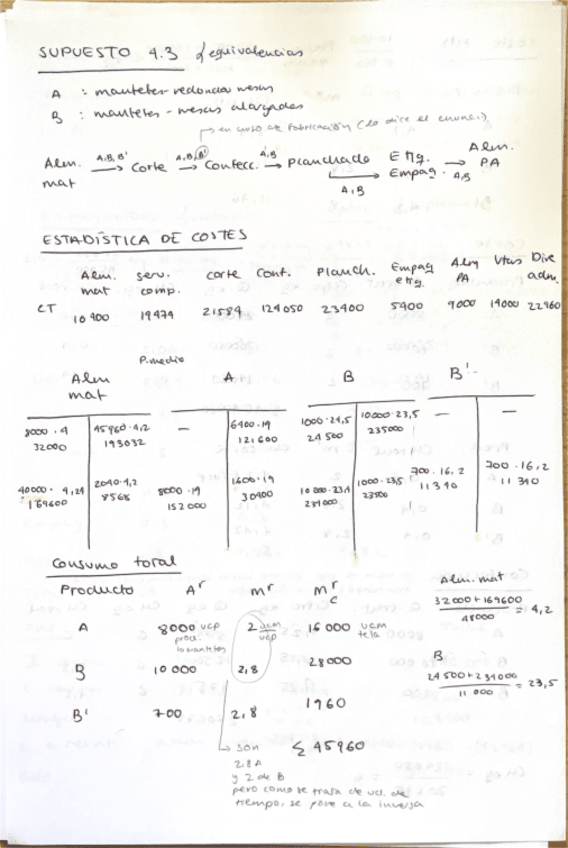 SUPUESTO 4.3 d'equivalencias
A : manteles redondos mesas
B : manteles - mesas alargadas
en curso de fabricación (lo dice el enunci.)
Alm. mat → A,B,B' → Corte → A,B,B' → Confecc. → A,B → Planchado → A,B → Etiq. Empaq. → A,B → Alm. PA
ESTADÍSTICA DE COSTES
Alm. mat serv. comp. corte Conf. Planch. Empaq etiq. Alm PA Vtas Dirc adm.
CT 10400 19474 21584 124050 23400 5400 9000 14000 22960
P.medio
Alm mat A B B'
8000·4 45960·4,2 — 6400·19 1000·24,5 10000·23,5 — —
32000 193032 121600 24500 235000
40000·4,24 2040·4,2 8000·19 1600·19 10000·23,4 1000·23,5 700·16,2 700·16,2
169600 8568 152000 30400 234000 23500 11340 11340
Consumo total
Producto Aʳ mʳ Mʳc
A 8000 ucp 2 ucm/ucp 16000 ucm tela
prod. los manteles
B 10 000 2,8 28000
B' 700 2,8 1960
Σ 45960
son
2,8 A
y 2 de B
pero como se trata de ud. de
tiempo, se pone a la inversa
Alm. mat
32000+169600 / 48000 = 4,2
B
24500+234000 / 11 000 = 23,5